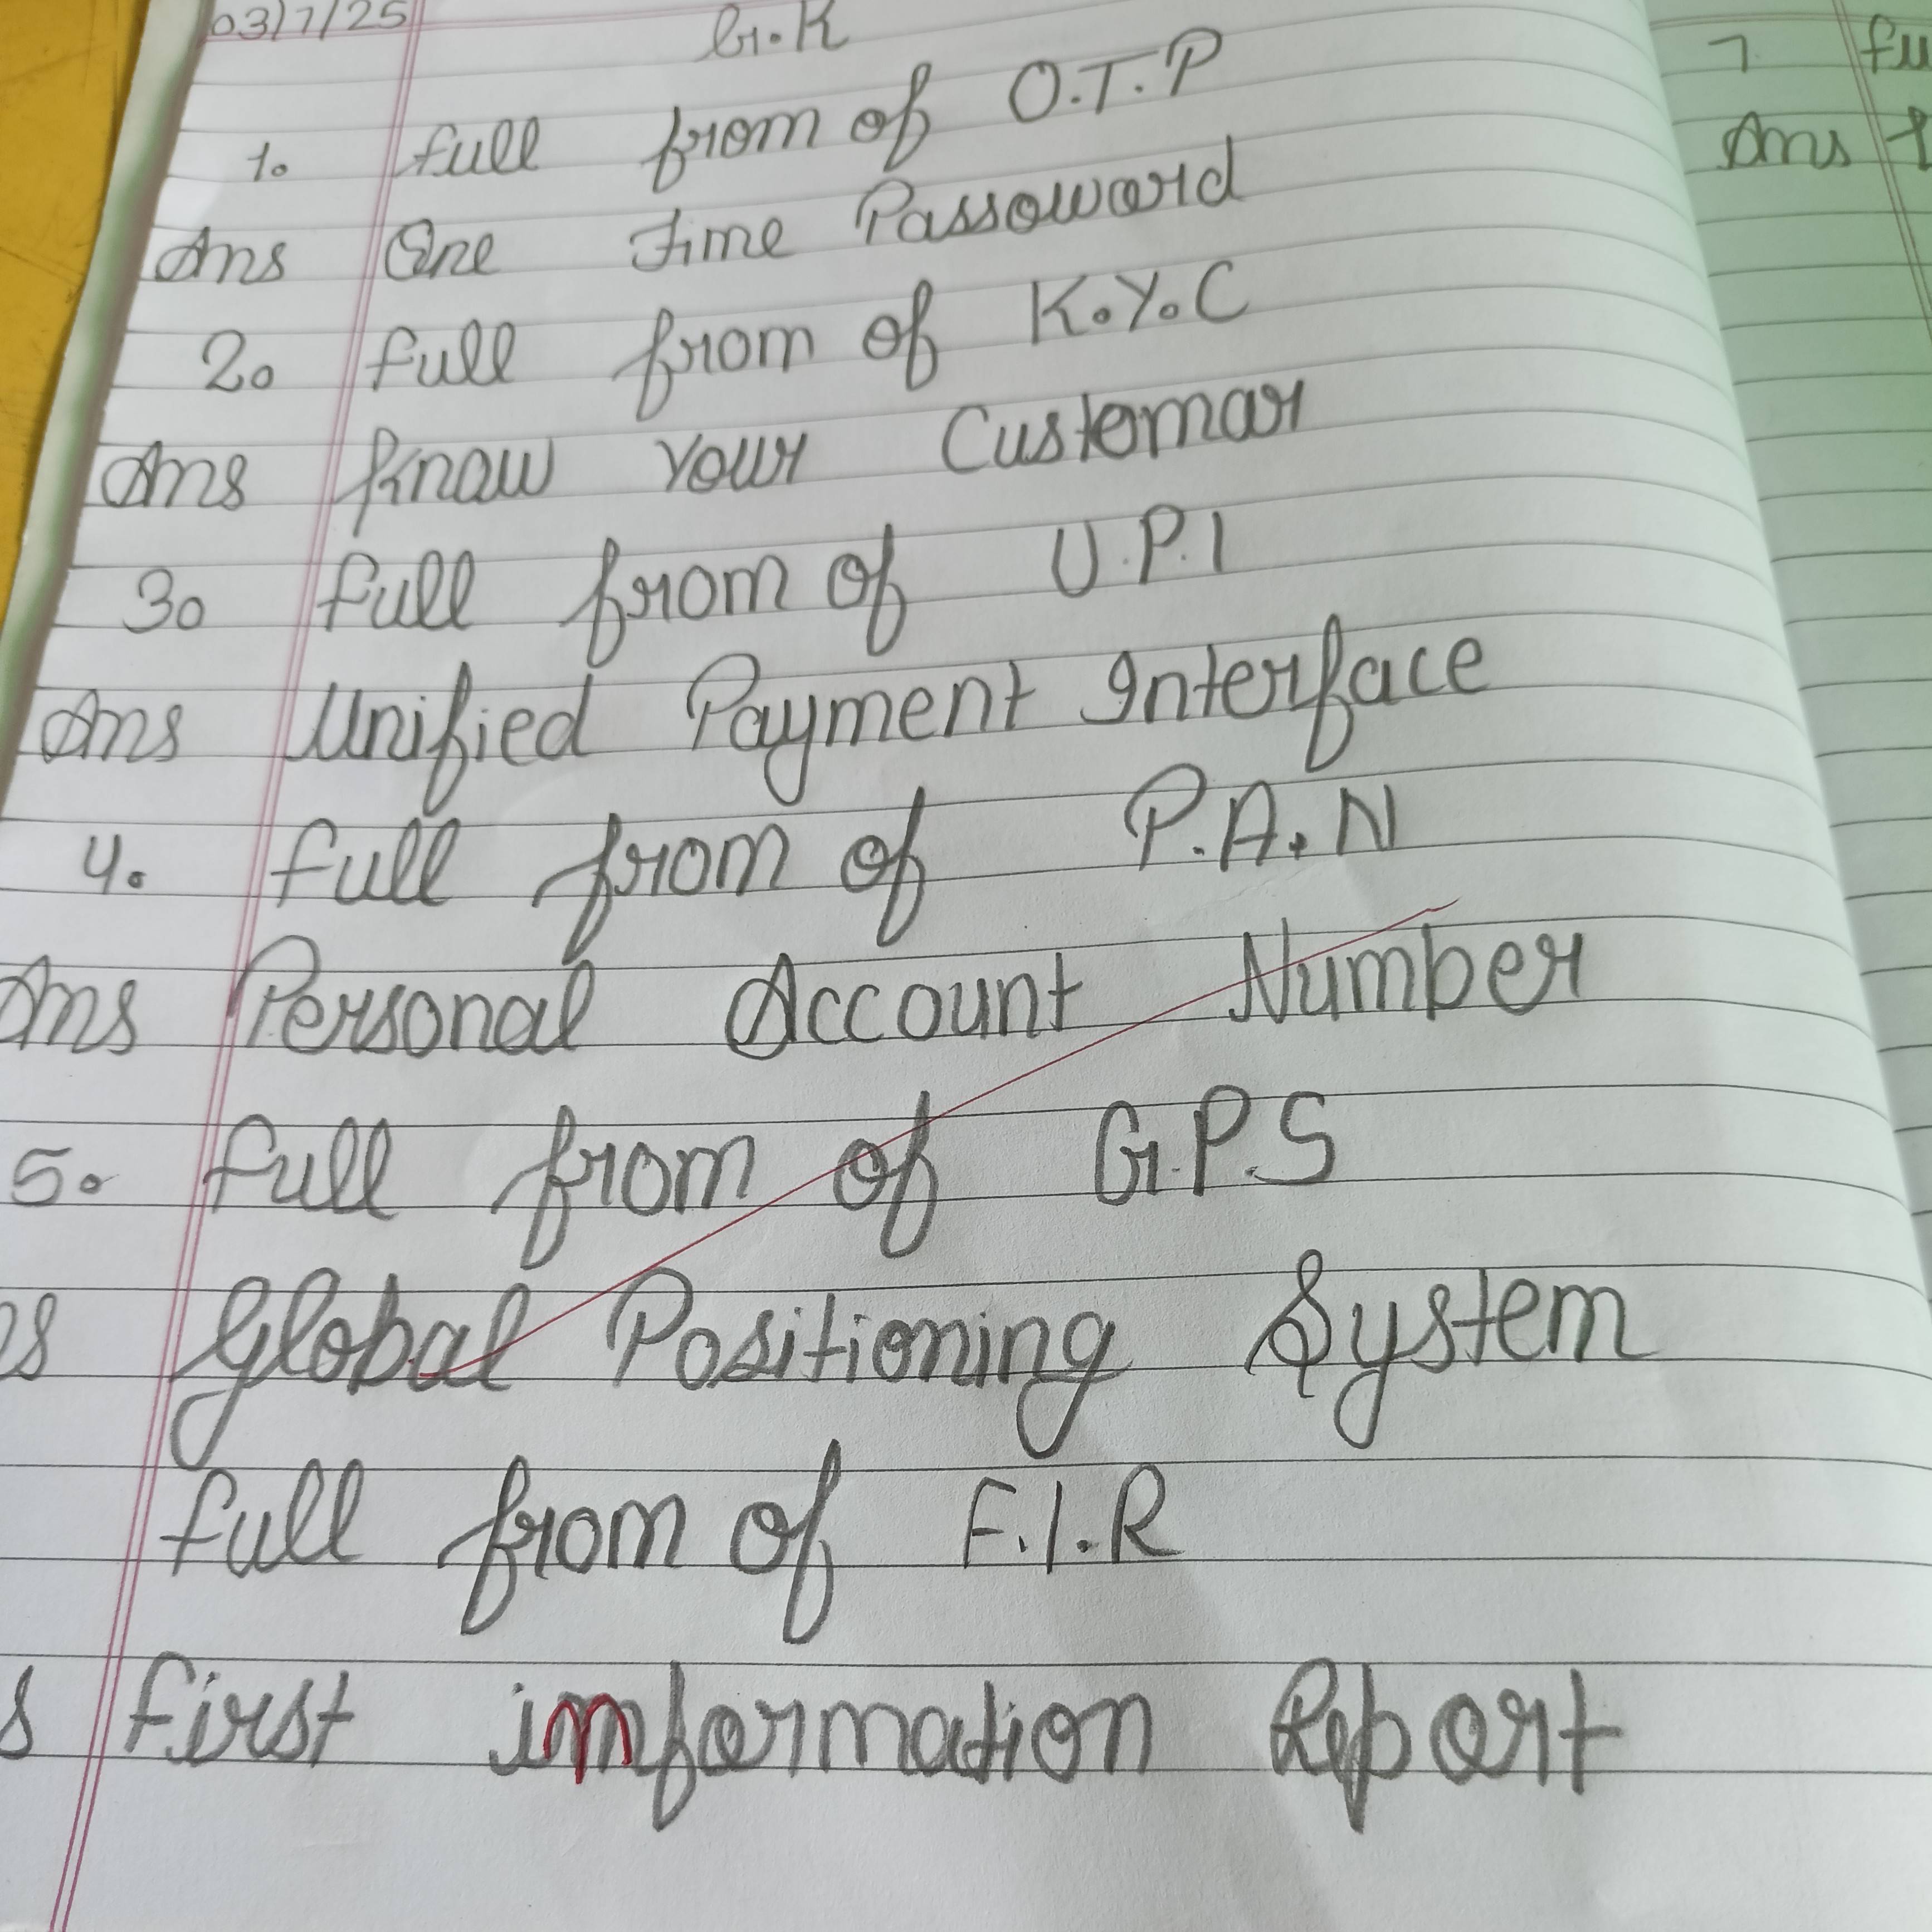 03/7/25
G.K
1. full from of O.T.P
Ans One Time Passoword
2. full from of K.Y.C
Ans Know Your Customar
3. full from of U.P.I
Ans Unified Payment Interface
4. full from of P.A.N
Ans Personal Account Number
5. full from of G.P.S
ns Global Positioning System
full from of F.I.R
s first imformation Report
7. fu
Ans